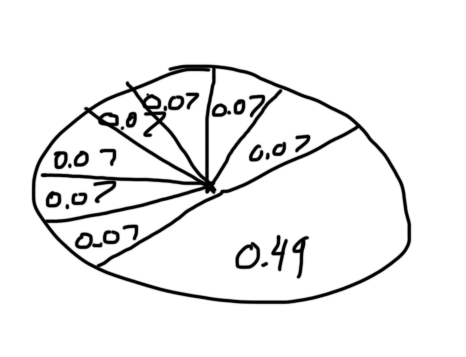 0.07
0.07
0.07
0.07
0.07
0.07
0.07
0.49